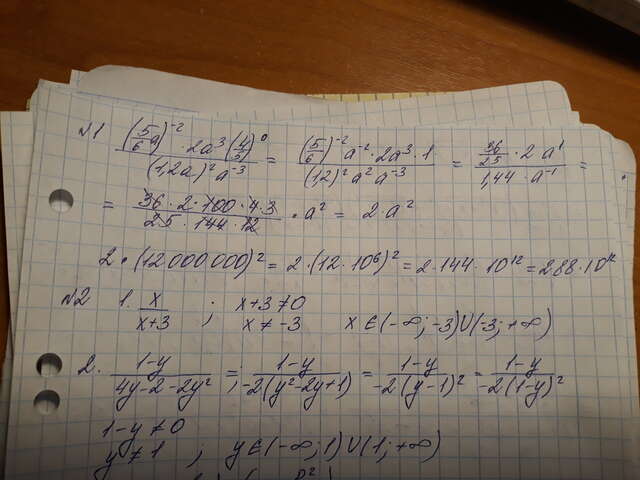 N1
(5/6 a)^-2 · 2a^3 (4/3)^0 / (12a)^2 a^-3 = (5/6)^-2 a^-2 · 2a^3 · 1 / (12)^2 a^2 a^-3 = 36/25 · 2a^1 / 144 · a^-1 =
· a^2 = 2 · a^2
2 · (12 000 000)^2 = 2 · (12 · 10^6)^2 = 2 · 144 · 10^12 = 288 · 10^12
N2
1. x / x+3 ; x+3 ≠ 0
x ≠ -3 x ∈ (-∞; -3) ∪ (-3; +∞)
2. 1-y / 4y-2-2y^2 = 1-y / -2(y^2-2y+1) = 1-y / -2(y-1)^2 = 1-y / -2(1-y)^2
1-y ≠ 0
y ≠ 1 ; y ∈ (-∞; 1) ∪ (1; +∞)